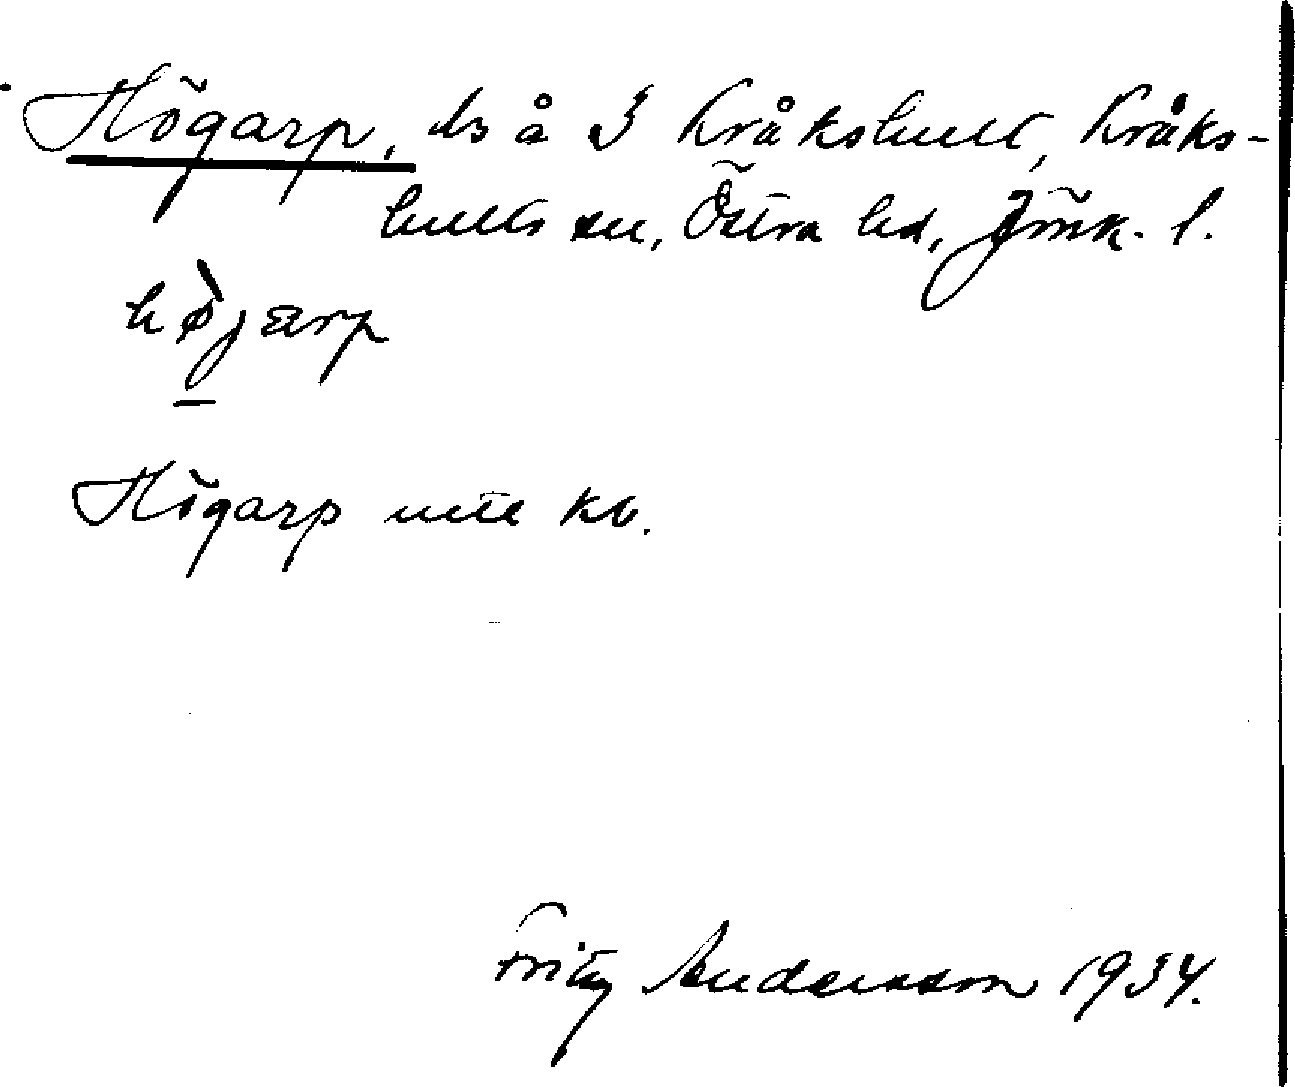 Högarp, ls å 3 Kråkshult, Kråks-
hults sn, Östra hd, Jönk. l.
Högarp enl kb.
Fritz Andersson 1934.